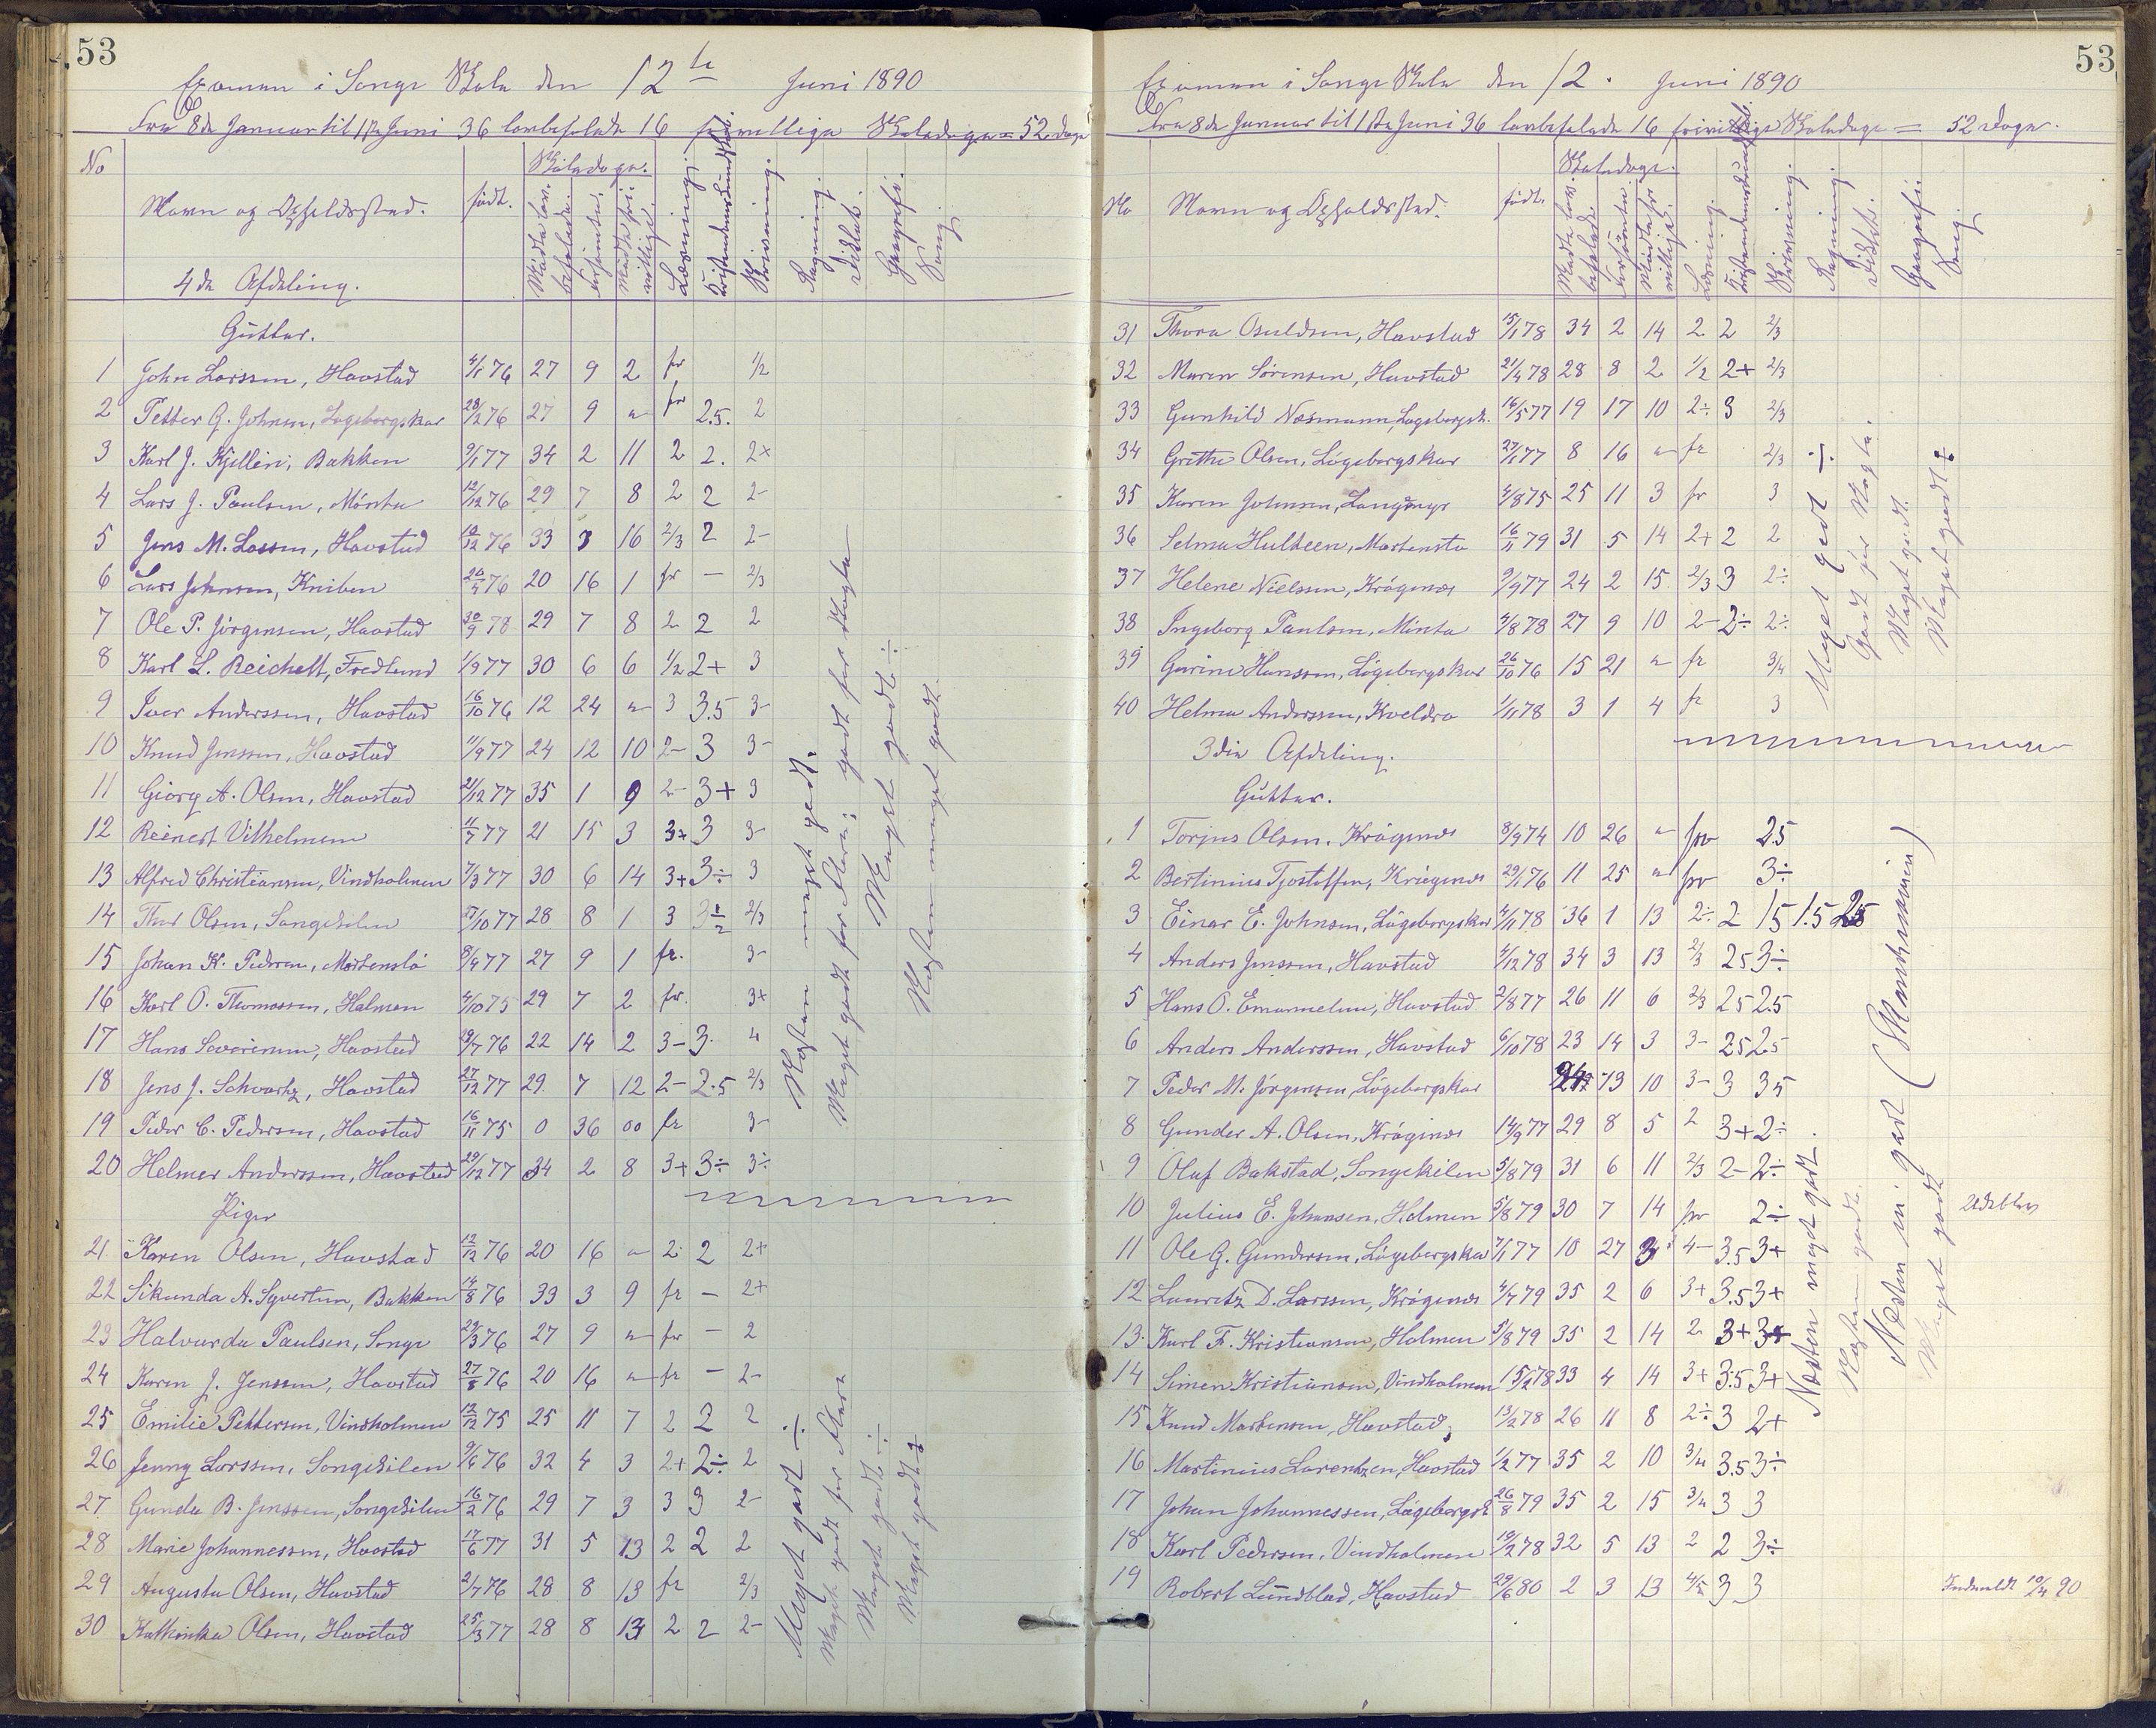 53
Examen i Songe Skole den 12te Juni 1890
Fra 8de Januar til 1ste Juni 36 lovbefalede 16 frivillige Skoledage = 52 Dage
No Navn og Opholdssted. født. Skoledage. Mødte lovbefalede. forsømte. Mødte frivillige. Læsning. Kristendomskundskab. Skrivning. Regning. Diktat. Geografi. Sang.
4de Afdeling.
Gutter.
1 John Larssen, Havstad 4/1 76 27 9 2 fr 1/2
2 Petter G. Johnsen, Løgebergskar 28/12 76 27 9 " fr 2.5. 2
3 Karl J. Kjelleri, Bakken 9/1 77 34 2 11 2 2. 2+
4 Lars J. Paulsen, Mönta 12/12 76 29 7 8 2 2 2-
5 Jens M. Lassen, Havstad 10/12 76 33 3 16 2/3 2 2-
6 Lars Johnsen, Kniben 20/4 76 20 16 1 fr - 2/3
7 Ole P. Jörgensen, Havstad 30/9 78 29 7 8 2 2 2
8 Karl L. Reichelt, Fredlund 1/9 77 30 6 6 1/2 2+ 3
9 Iver Anderssen, Havstad 16/10 76 12 24 " 3 3.5 3-
10 Knud Jenssen, Havstad 11/9 77 24 12 10 2- 3 3-
11 Giorg A. Olsen, Havstad 21/12 77 35 1 9 2- 3+ 3
12 Reinert Vilhelmsen 11/7 77 21 15 3 3+ 3 3-
13 Alfred Christiansen, Vindholmen 7/3 77 30 6 14 3+ 3÷ 3
14 Thor Olsen, Songekilen 27/10 77 28 8 1 3 3 1/2 2/3
15 Johan K. Pedersen, Mortensta 8/9 77 27 9 1 fr. 3-
16 Karl O. Thomassen, Holmen 4/10 75 29 7 2 fr. 3+
17 Hans Severinsen, Havstad 29/7 76 22 14 2 3- 3. 4
18 Jens J. Schvartz, Havstad 27/12 77 29 7 12 2- 2.5 2/3
19 Peder C. Pedersen, Havstad 16/11 75 0 36 00 fr 3-
20 Helmer Anderssen, Havstad 29/12 77 34 2 8 3+ 3÷ 3÷
Næsten meget godt.
Meget godt for Flere; godt for Nogle
Meget godt ÷
Næsten meget godt.
Piger
21. Karen Olsen, Havstad 12/12 76 20 16 " 2. 2 2+
22 Sikunda A. Syvertsen, Bakken 14/8 76 33 3 9 fr - 2+
23 Halvarda Paulsen, Songe 29/3 76 27 9 " fr - 2
24 Karen J. Jenssen, Havstad 27/8 76 20 16 " fr - 2-
25 Emilie Pettersen, Vindholmen 12/12 75 25 11 7 2 2 2
26 Jenny Larssen, Songekilen 9/6 76 32 4 3 2+ 2÷ 2
27 Gunda B. Jenssen, Songekilen 16/2 76 29 7 3 3 3 2-
28 Marie Johannessen, Havstad 17/6 77 31 5 13 2 2 2
29 Augusta Olsen, Havstad 2/7 76 28 8 13 fr 2/3
30 Kathinka Olsen, Havstad 25/3 77 28 8 13 2 2 2-
Meget godt ÷
Meget godt for Flere
Meget godt ÷
Meget godt ÷
53
Examen i Songe Skole den 12. Juni 1890
Fra 8de Januar til 1ste Juni 36 lovbefalede 16 frivillige Skoledage = 52 Dage.
No Navn og Opholdssted. født. Skoledage. Mødte lovbefalede. Forsømte Mødte frivillige. Læsning. Kristendomskundskab Skrivning. Regning. Diktat. Geografi. Sang.
31 Thora Osuldsen, Havstad 15/1 78 34 2 14 2 2 2/3
32 Maren Sörensen, Havstad 21/4 78 28 8 2 1/2 2+ 2/3
33 Gunhild Næsmann, Løgebergsk. 16/5 77 19 17 10 2÷ 3 2/3
34 Grethe Olsen, Lögebergskar 27/1 77 8 16 " fr 2/3
35 Karen Johnsen, Langmyr 4/8 75 25 11 3 fr 3
36 Selma Hulteen, Mortensta 16/11 79 31 5 14 2+ 2 2
37 Helene Nielssen, Krøgenes 9/9 77 24 2 15. 2/3 3 2÷
38 Ingeborg Paulsen, Minta 4/8 78 27 9 10 2- 2÷ 2÷
39 Gurine Hanssen, Lögebergskar 26/10 76 15 21 " fr 3/4
40 Helma Anderssen, Kveldro 1/11 78 3 1 4 fr 3
Meget godt ÷
Godt for Nogle.
Meget godt.
Meget godt ÷
3die Afdeling.
Gutter.
1 Torjus Olsen. Krögenes 8/9 74 10 26 " fr 25
2 Bertinius Tjostolfsen, Krögenes 29/1 76 11 25 " fr 3÷
3 Einar E. Johnsen, Lögebergskar 4/11 78 36 1 13 2÷ 2 15 1.5 25
4 Anders Jenssen, Havstad 4/12 78 34 3 13 2/3 25 3÷
5 Hans O. Emanuelsen, Havstad 2/8 77 26 11 6 2/3 25 2.5
6 Anders Anderssen, Havstad 6/10 78 23 14 3 3- 25 2.5
7 Peder M. Jörgensen, Lögebergskar 24 13 10 3- 3 35
8 Gunder A. Olsen, Krögenes 14/9 77 29 8 5 2 3+ 2÷
9 Oluf Bakstad, Songekilen 5/8 79 31 6 11 2/3 2- 2÷
10 Julius E. Johansen, Holmen 5/8 79 30 7 14 fr 2÷
11 Ole G. Gundersen, Lögebergskar 7/1 77 10 27 3 4- 3.5 3+
12 Lauritz D. Larssen, Krögenes 4/7 79 35 2 6 3+ 3.5 3+
13. Karl F. Kristiansen, Holmen 5/8 79 35 2 14 2 3+ 3+
14 Simen Kristiansen, Vindholmen 15/2 78 33 4 14 3+ 3.5 3+
15 Knud Mortensen, Havstad 13/2 78 26 11 8 2÷ 3 2+
16 Martinius Lorentzen, Havstad 1/2 77 35 2 10 3/4 3.5 3÷
17 Johan Johannessen, Lögebergsk 26/8 79 35 2 15 3/4 3 3
18 Karl Pedersen, Vindholmen 19/2 78 32 5 13 2 2 3÷
19 Robert Lundblad, Havstad 29/6 80 2 3 13 4/5 3 3 Indmeldt 10/4 90
Næsten meget godt.
Næsten godt.
Næsten m: godt
Meget godt